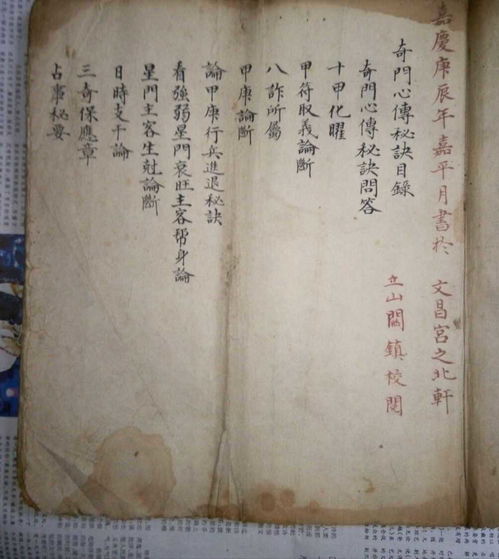 嘉慶庚辰年嘉平月書於 文昌宮之北軒
立山闊鎮校閱
奇門心傳秘訣目錄
奇門心傳秘訣問答
十甲化曜
甲符取義論斷
八詐所屬
甲庚論斷
論甲庚行兵進退秘訣
看強弱星門衰旺主客帮身論
星門主客生尅論斷
日時支干論
三奇保應章
占事秘要